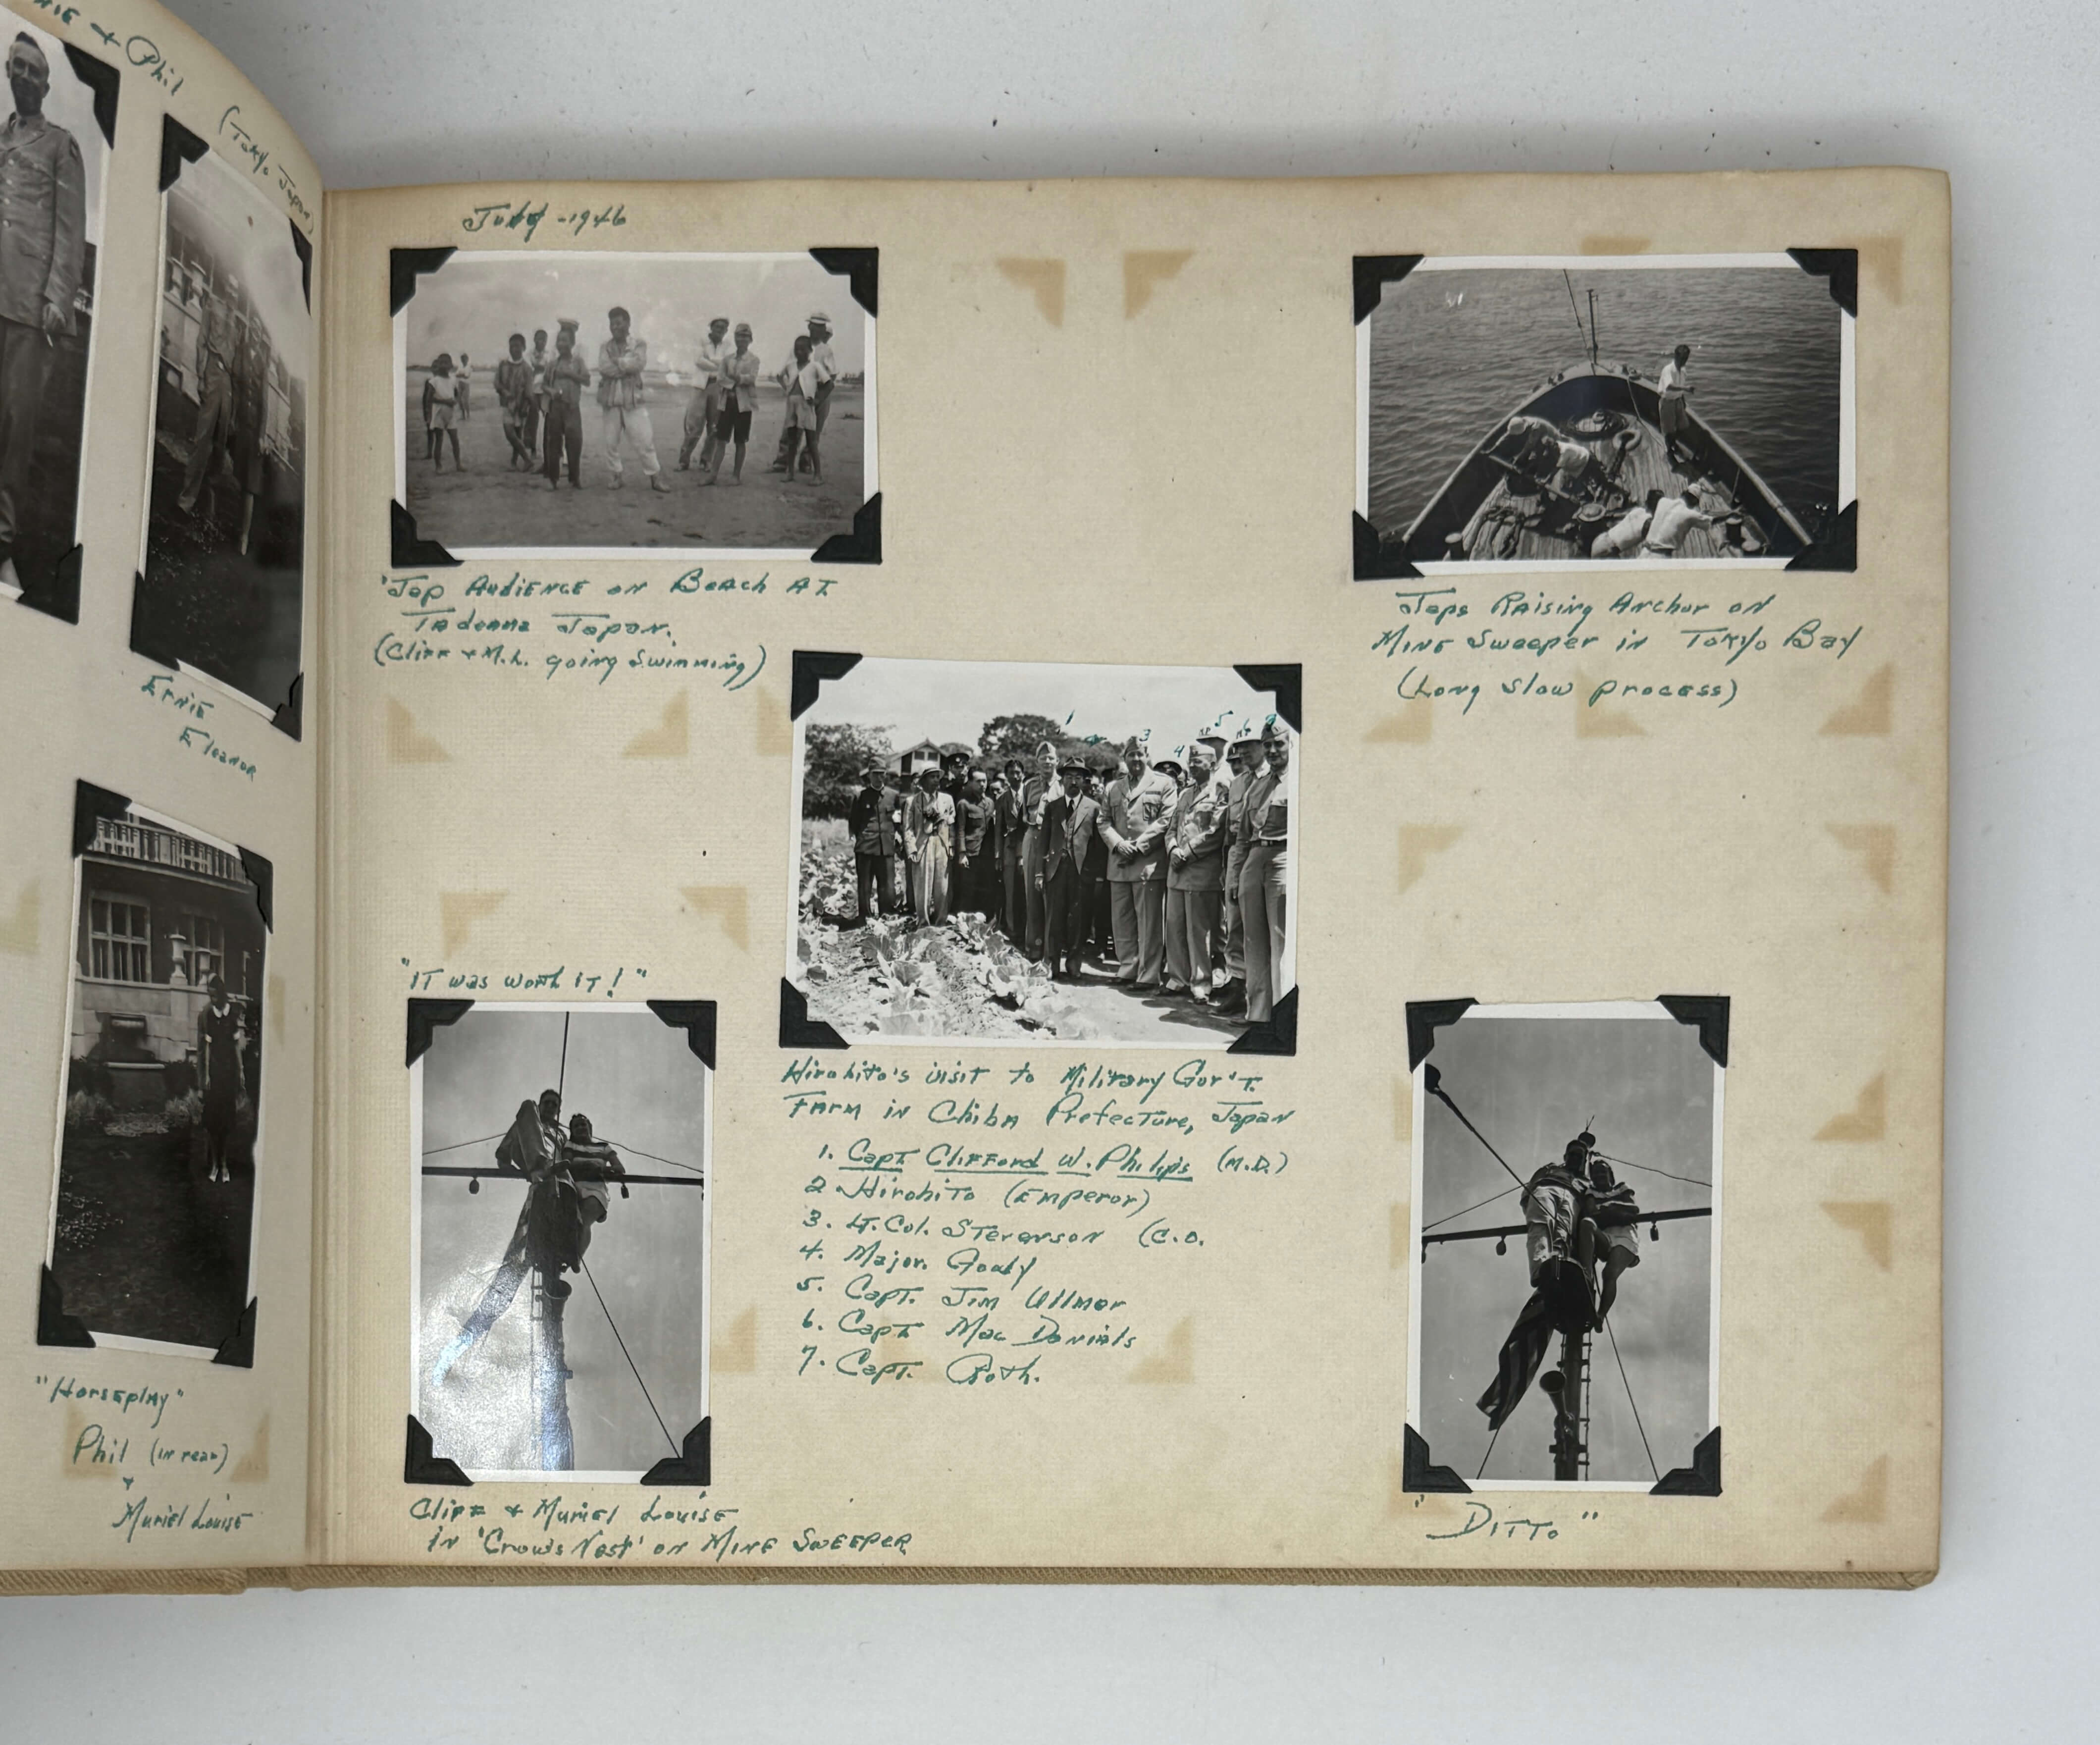 & Phil
(Tokyo Japan)
Ernie
Eleanor
"Horseplay"
Phil (in rear)
+
Muriel Louise
July - 1946
'Jap Audience on Beach At
Japan.
(Cliff + M.L. going Swimming)
Japs Raising Anchor on
Mine Sweeper in Tokyo Bay
(Long Slow process)
1
3
4
5
6
"IT was worth iT!"
Hirohito's visit to Military Gov't.
Farm in Chiba Prefecture, Japan
1. Capt Clifford W. Philips (M.D.)
2 Hirohito (Emperor)
3. Lt. Col. Stevenson (C.O.
4. Major.
5. Capt. Jim Ullmer
6. Capt Mac Danials
7. Capt. Roth.
Cliff + Muriel Louise
in 'Crow's Nest' on Mine Sweeper
"Ditto"